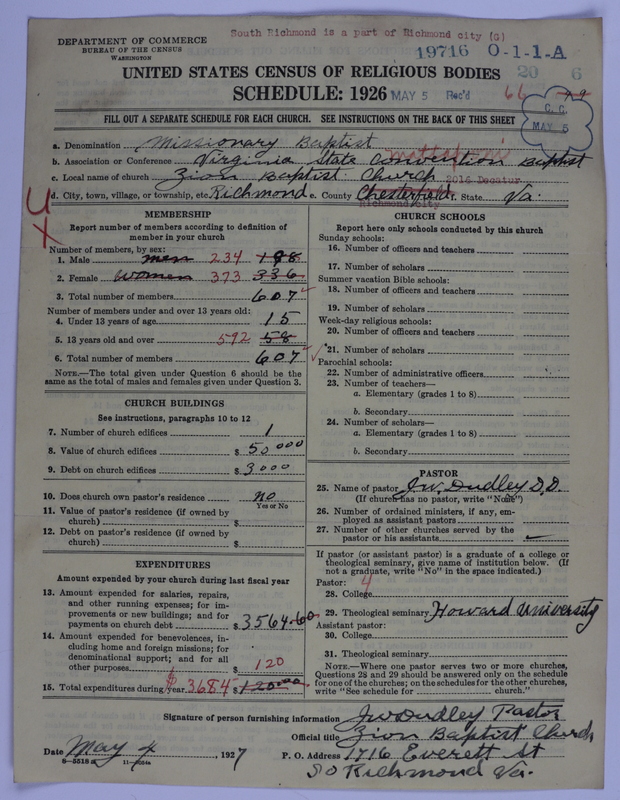 South Richmond is a part of Richmond city (G)
DEPARTMENT OF COMMERCE
BUREAU OF THE CENSUS
WASHINGTON
19716 0-1-1-A
20 6
UNITED STATES CENSUS OF RELIGIOUS BODIES
SCHEDULE: 1926 MAY 5 Rec'd 66 49
C. C.
MAY 5
FILL OUT A SEPARATE SCHEDULE FOR EACH CHURCH. SEE INSTRUCTIONS ON THE BACK OF THIS SHEET
a. Denomination Missionary Baptist
mattaponi
b. Association or Conference Virginia State Convention Baptist
c. Local name of church Zion Baptist Church 2016 Decatur
d. City, town, village, or township, etc. Richmond e. County Chesterfield f. State Va.
Richmond City
MEMBERSHIP
Report number of members according to definition of
member in your church
Number of members, by sex:
1. Male men 234 198
2. Female women 373 336
3. Total number of members 607
Number of members under and over 13 years old:
4. Under 13 years of age 15
5. 13 years old and over 592 58
6. Total number of members 607
NOTE.—The total given under Question 6 should be the
same as the total of males and females given under Question 3.
CHURCH BUILDINGS
See instructions, paragraphs 10 to 12
7. Number of church edifices 1
8. Value of church edifices $ 50000
9. Debt on church edifices $ 3000
10. Does church own pastor's residence no
Yes or No
11. Value of pastor's residence (if owned by
church) $
12. Debt on pastor's residence (if owned by
church) $
EXPENDITURES
Amount expended by your church during last fiscal year
13. Amount expended for salaries, repairs,
and other running expenses; for im-
provements or new buildings; and for
payments on church debt $ 3564.60
14. Amount expended for benevolences, in-
cluding home and foreign missions; for
denominational support; and for all
other purposes $ 120
15. Total expenditures during year $ 3684 $ 120.00
CHURCH SCHOOLS
Report here only schools conducted by this church
Sunday schools:
16. Number of officers and teachers
17. Number of scholars
Summer vacation Bible schools:
18. Number of officers and teachers
19. Number of scholars
Week-day religious schools:
20. Number of officers and teachers
21. Number of scholars
Parochial schools:
22. Number of administrative officers
23. Number of teachers—
a. Elementary (grades 1 to 8)
b. Secondary
24. Number of scholars—
a. Elementary (grades 1 to 8)
b. Secondary
PASTOR
25. Name of pastor J.W. Dudley D.D.
(If church has no pastor, write "None")
26. Number of ordained ministers, if any, em-
ployed as assistant pastors
27. Number of other churches served by the
pastor or his assistants
If pastor (or assistant pastor) is a graduate of a college or
theological seminary, give name of institution below. (If
not a graduate, write "No" in the space indicated.)
Pastor: 4
28. College
29. Theological seminary Howard University
Assistant pastor:
30. College
31. Theological seminary
NOTE.—Where one pastor serves two or more churches,
Questions 28 and 29 should be answered only on the schedule
for one of the churches; on the schedules for the other churches,
write "See schedule for church."
Signature of person furnishing information J W Dudley Pastor
Official title Zion Baptist Church
Date May 4 1927 P. O. Address 1716 Everett St
So Richmond Va.